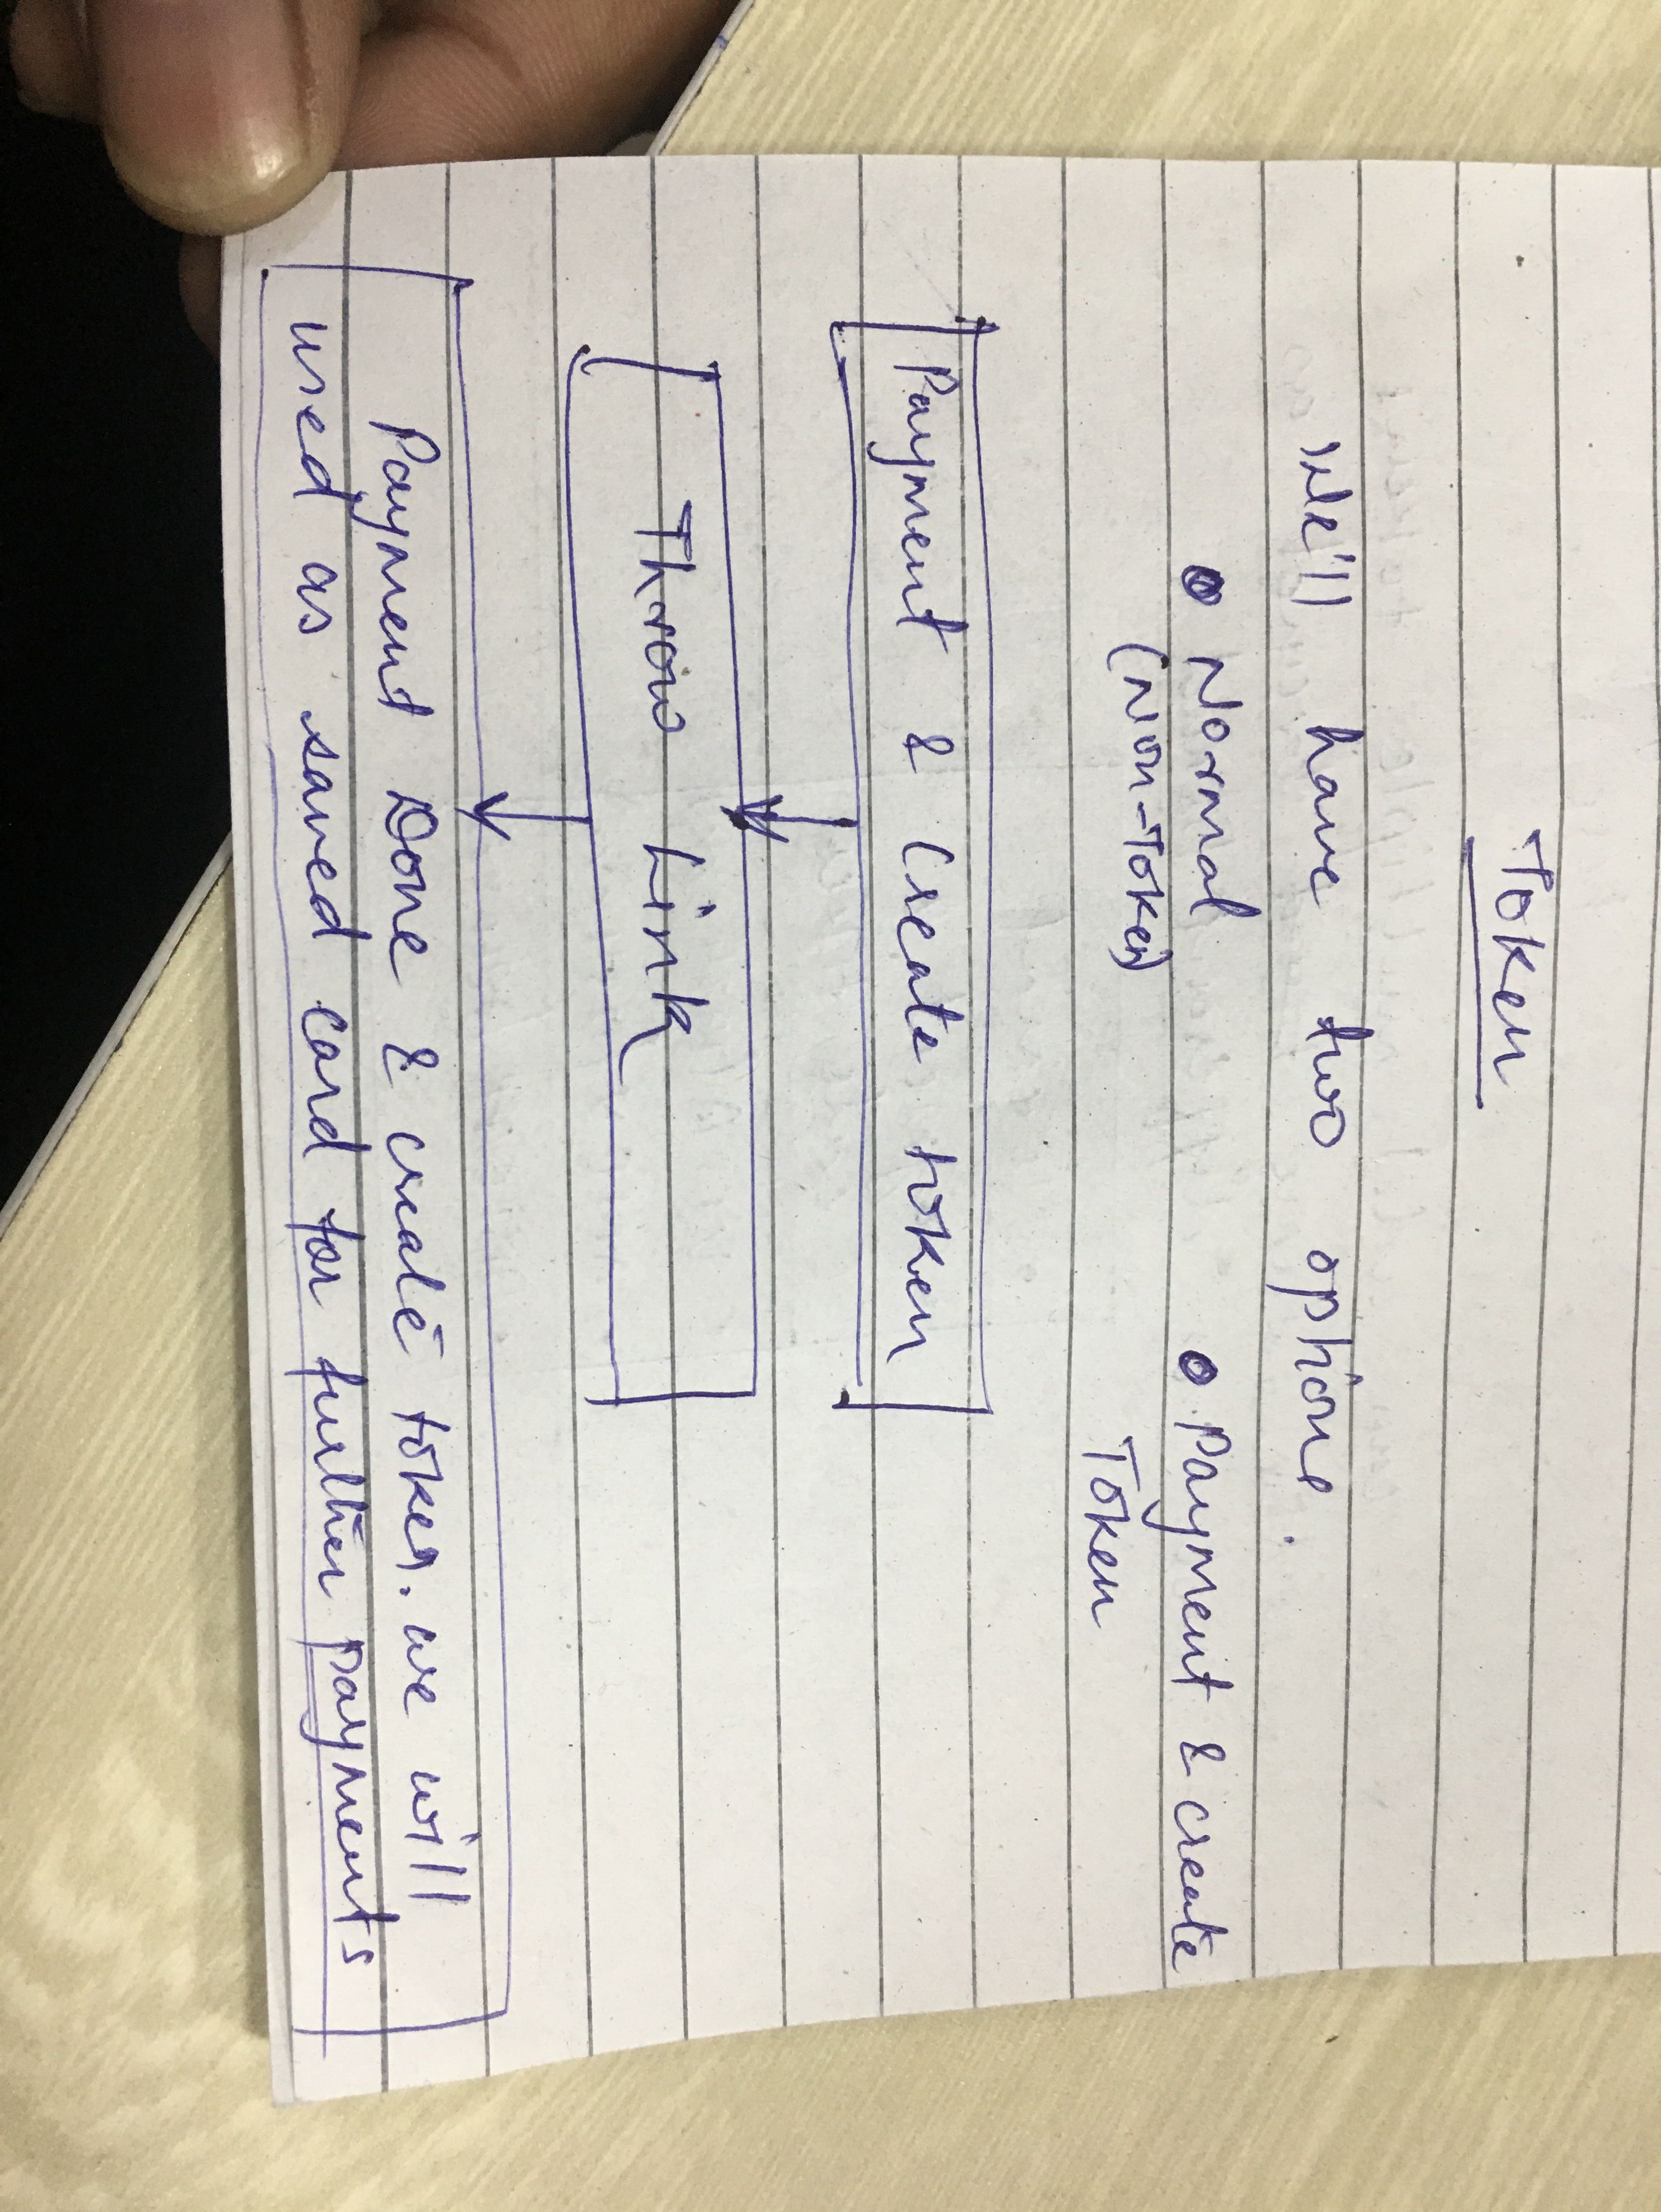 Token
We'll have two options.
• Normal
(Non-Token)
• Payment & create
Token
Payment & Create token
Throw Link
Payment Done & create token. we will
used as saved card for further payments